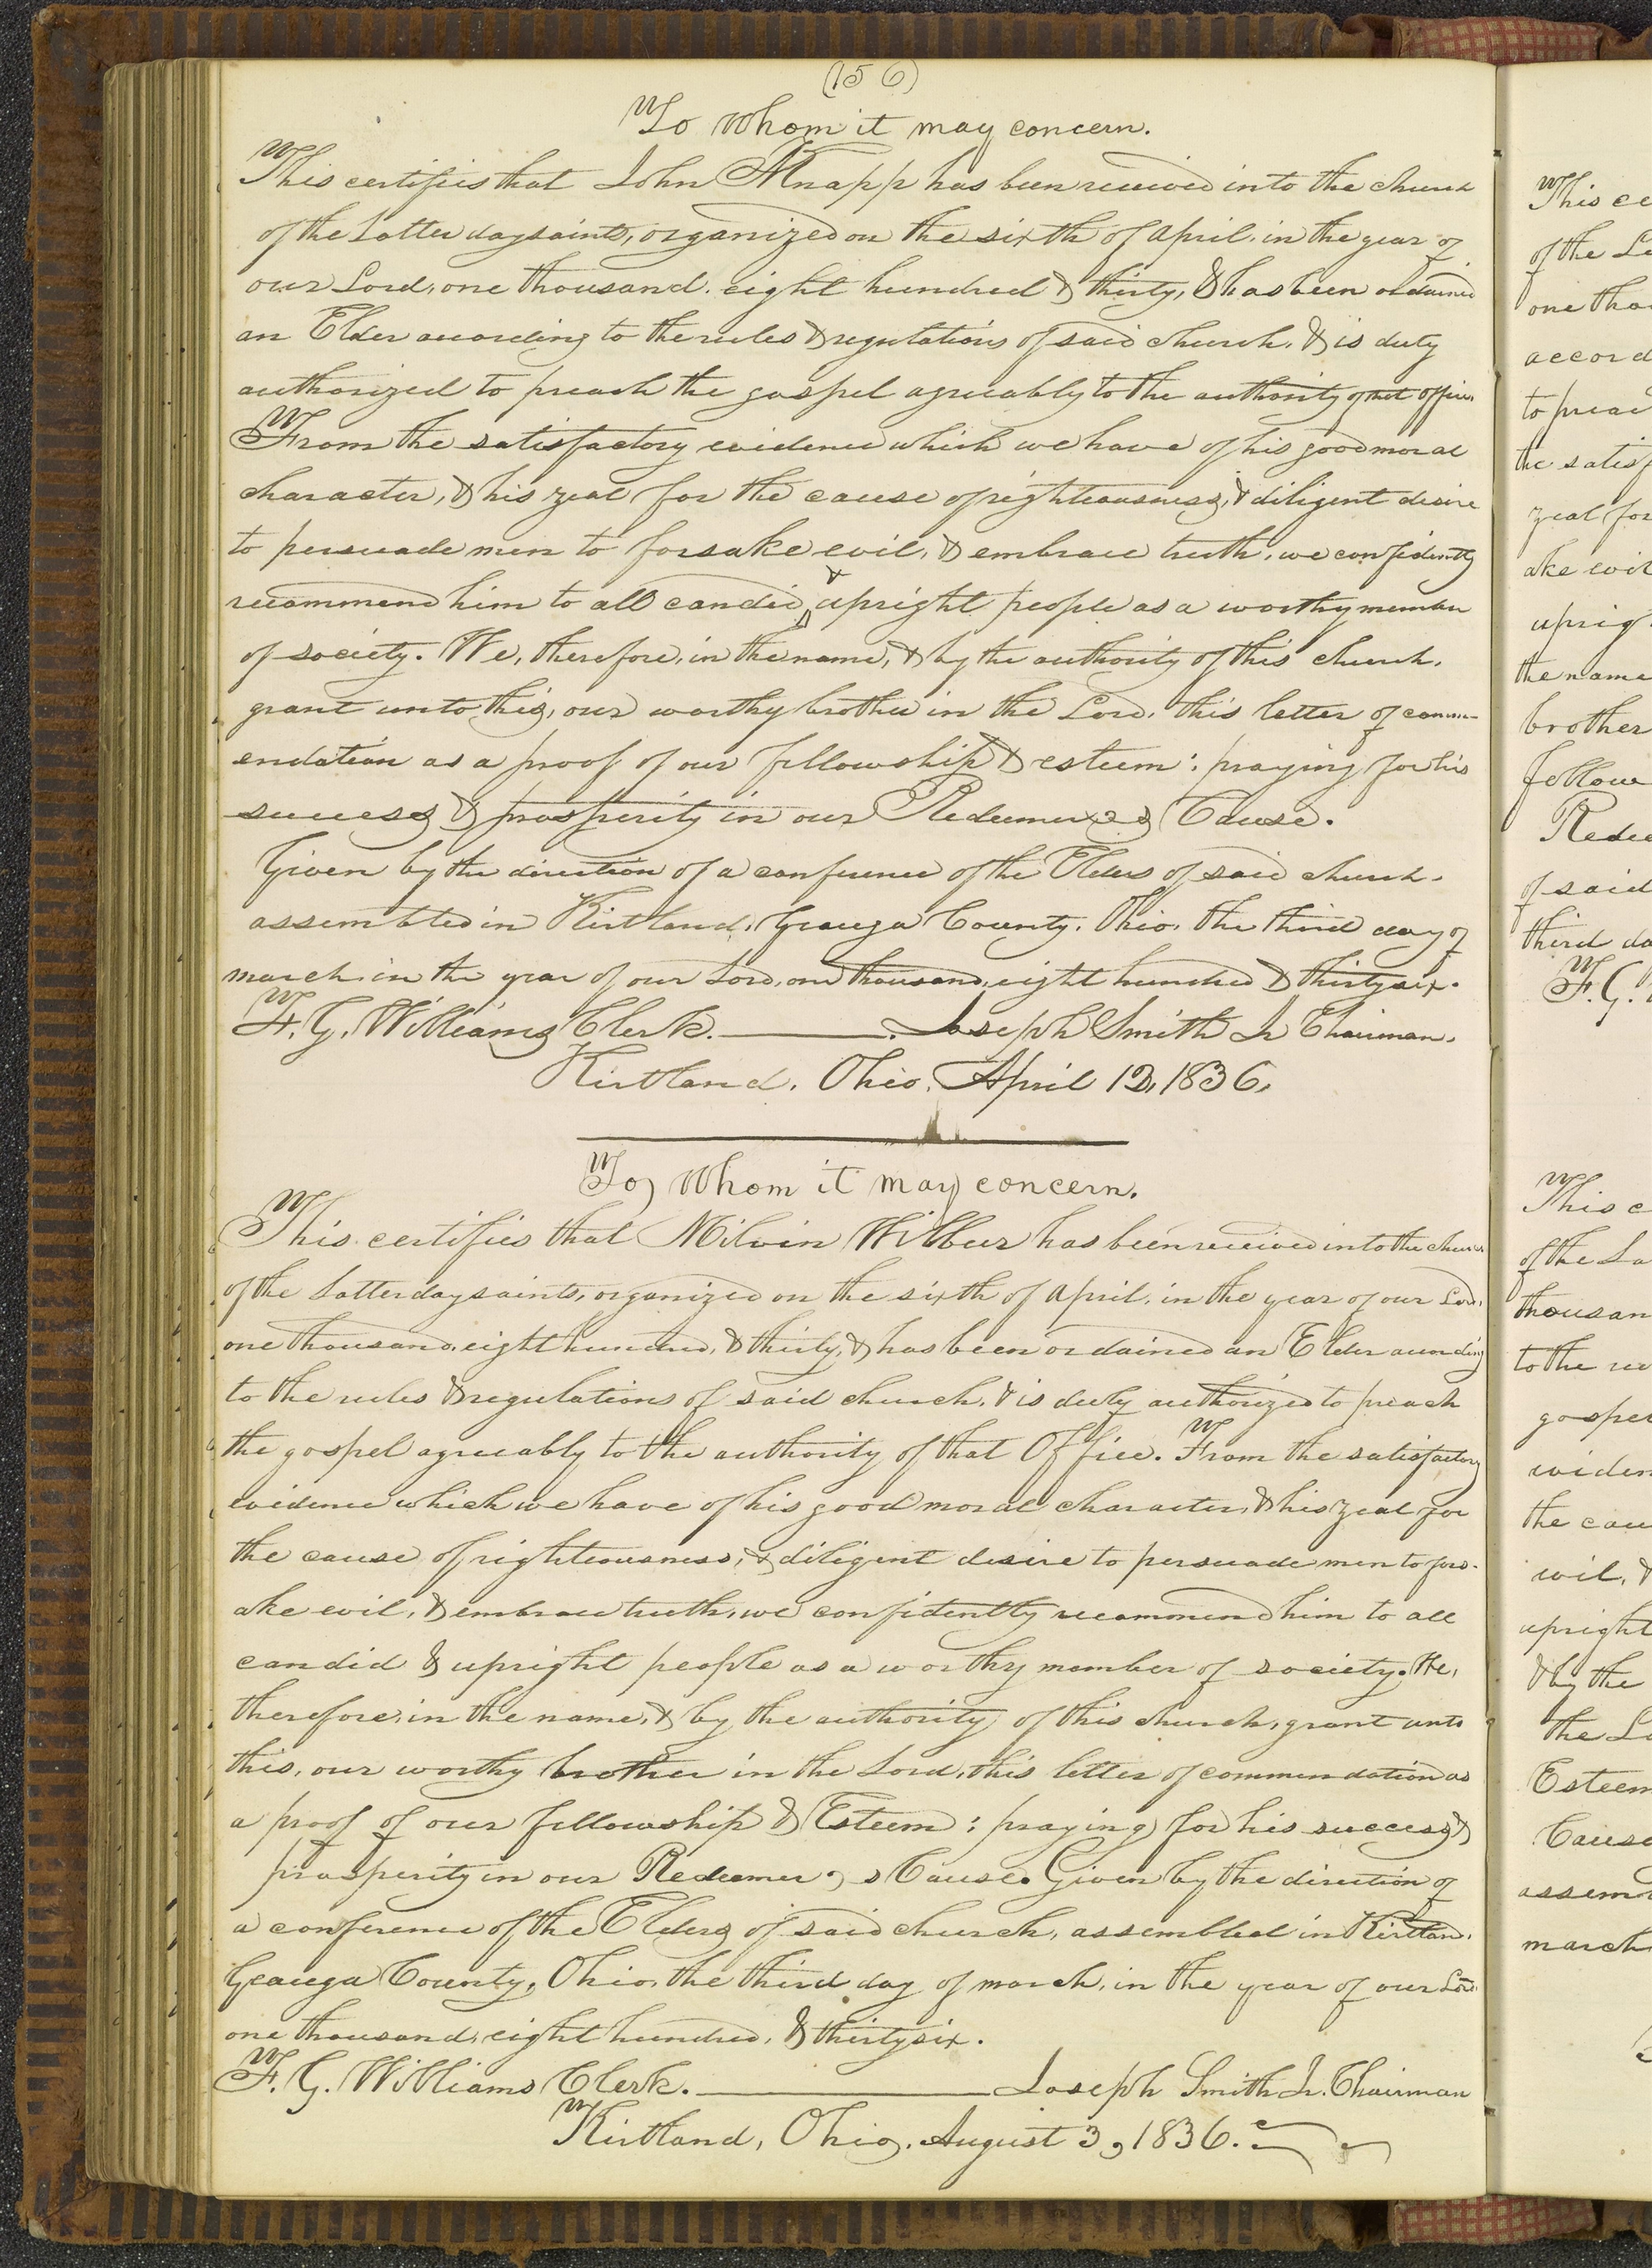 (156)
To Whom it may concern.
This certifies that John Knapp has been received into the church
of the Latter day saints, organized on the sixth of April, in the year of
our Lord, one thousand, eight hundred & thirty, & has been ordained
an Elder according to the rules & regulations of said church, & is duly
authorized to preach the gospel agreeably to the authority of that office.
From the satisfactory evidence which we have of his good moral
character, & his zeal for the cause of righteousness, & diligent desire
to persuade men to forsake evil, & embrace truth, we confidently
recommend him to all candid & upright people as a worthy member
of society. We, therefore, in the name, & by the authority of this church,
grant unto this, our worthy brother in the Lord, this letter of comm-
endation as a proof of our fellowship & esteem: praying for his
success & prosperity in our Redeemer's Cause.
Given by the direction of a conference of the Elders of said church,
assembled in Kirtland, Geauga County, Ohio, the third day of
march in the year of our Lord, one thousand, eight hundred & thirty six.
F. G. Williams Clerk. Joseph Smith Jr Chairman.
Kirtland, Ohio, April 12, 1836.
To Whom it may concern.
This certifies that Milvin Wilbur has been received into the church
of the Latter day saints, organized on the sixth of April, in the year of our Lord,
one thousand, eight hundred, & thirty, & has been ordained an Elder according
to the rules & regulations of said church, & is duly authorized to preach
the gospel agreeably to the authority of that Office. From the satisfactory
evidence which we have of his good moral character, & his zeal for
the cause of righteousness, & diligent desire to persuade men to fors-
ake evil, & embrace truth, we confidently recommend him to all
candid & upright people as a worthy member of society. We,
therefore, in the name, & by the authority of this church, grant unto
this, our worthy brother in the Lord, this letter of commendation as
a proof of our fellowship & Esteem: praying for his success &
prosperity in our Redeemer,s Cause. Given by the direction of
a conference of the Elders of said church, assembled in Kirtland,
Geauga County, Ohio, the third day of march, in the year of our Lord
one thousand, eight hundred, & thirty six.
F. G. Williams Clerk. Joseph Smith Jr. Chairman
Kirtland, Ohio, August 3, 1836.
This ce
of the La
one thou
accord
to preac
the satisf
zeal for
ake evil
uprigh
the name
brother
fellow
Redee
of said
third da
F. G.
This c
of the La
thousan
to the ru
gospel
eviden
the cau
evil, &
upright
& by the
the Lo
Esteem
Cause
assem
march